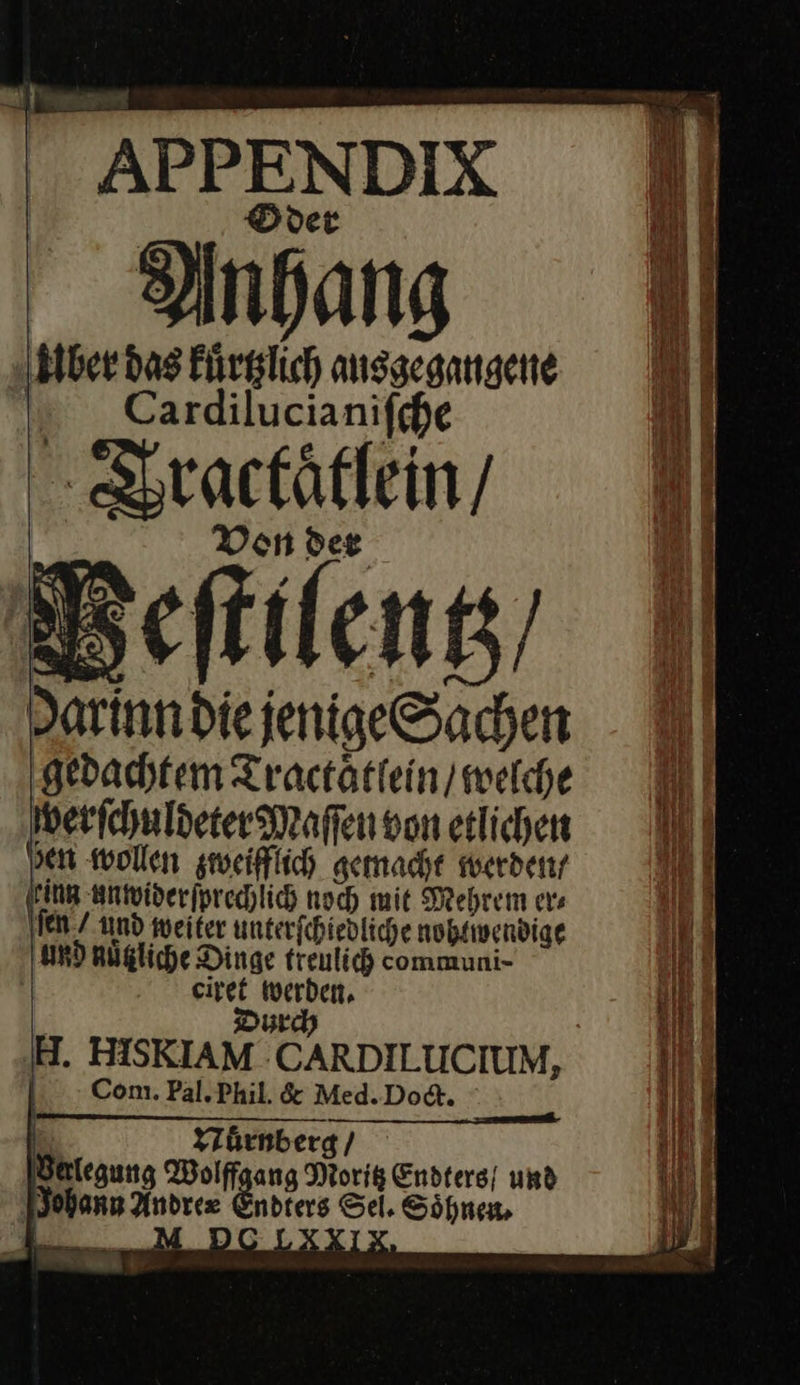 APPENDIX
Oder
Anhang
Uber das kůrtzlich ausgegangene
Cardilucianiſche
Tractåtlein/
Von der
Peſtilentz/
Darinn die jenige Sachen
gedachtem Tractåtlein/ welche
verſchuldeter Maſſen von etlichen
ben wollen zweifflich gemacht werden/
rinn unwiderſprechlich noch mit Mehrem er⸗
ſen / und weiter unterſchiedliche nohtwendige
und nůtzliche Dinge treulich communi-
ciret werden.
Durch
H. HISKIAM CARDILUCIUM,
Com. Pal. Phil. & Med. Doct.
Nůrnberg /
Verlegung Wolffgang Moritz Endters/ und
Johann Andreæ Endters Sel. Söhnen.
M DC LXXIX.